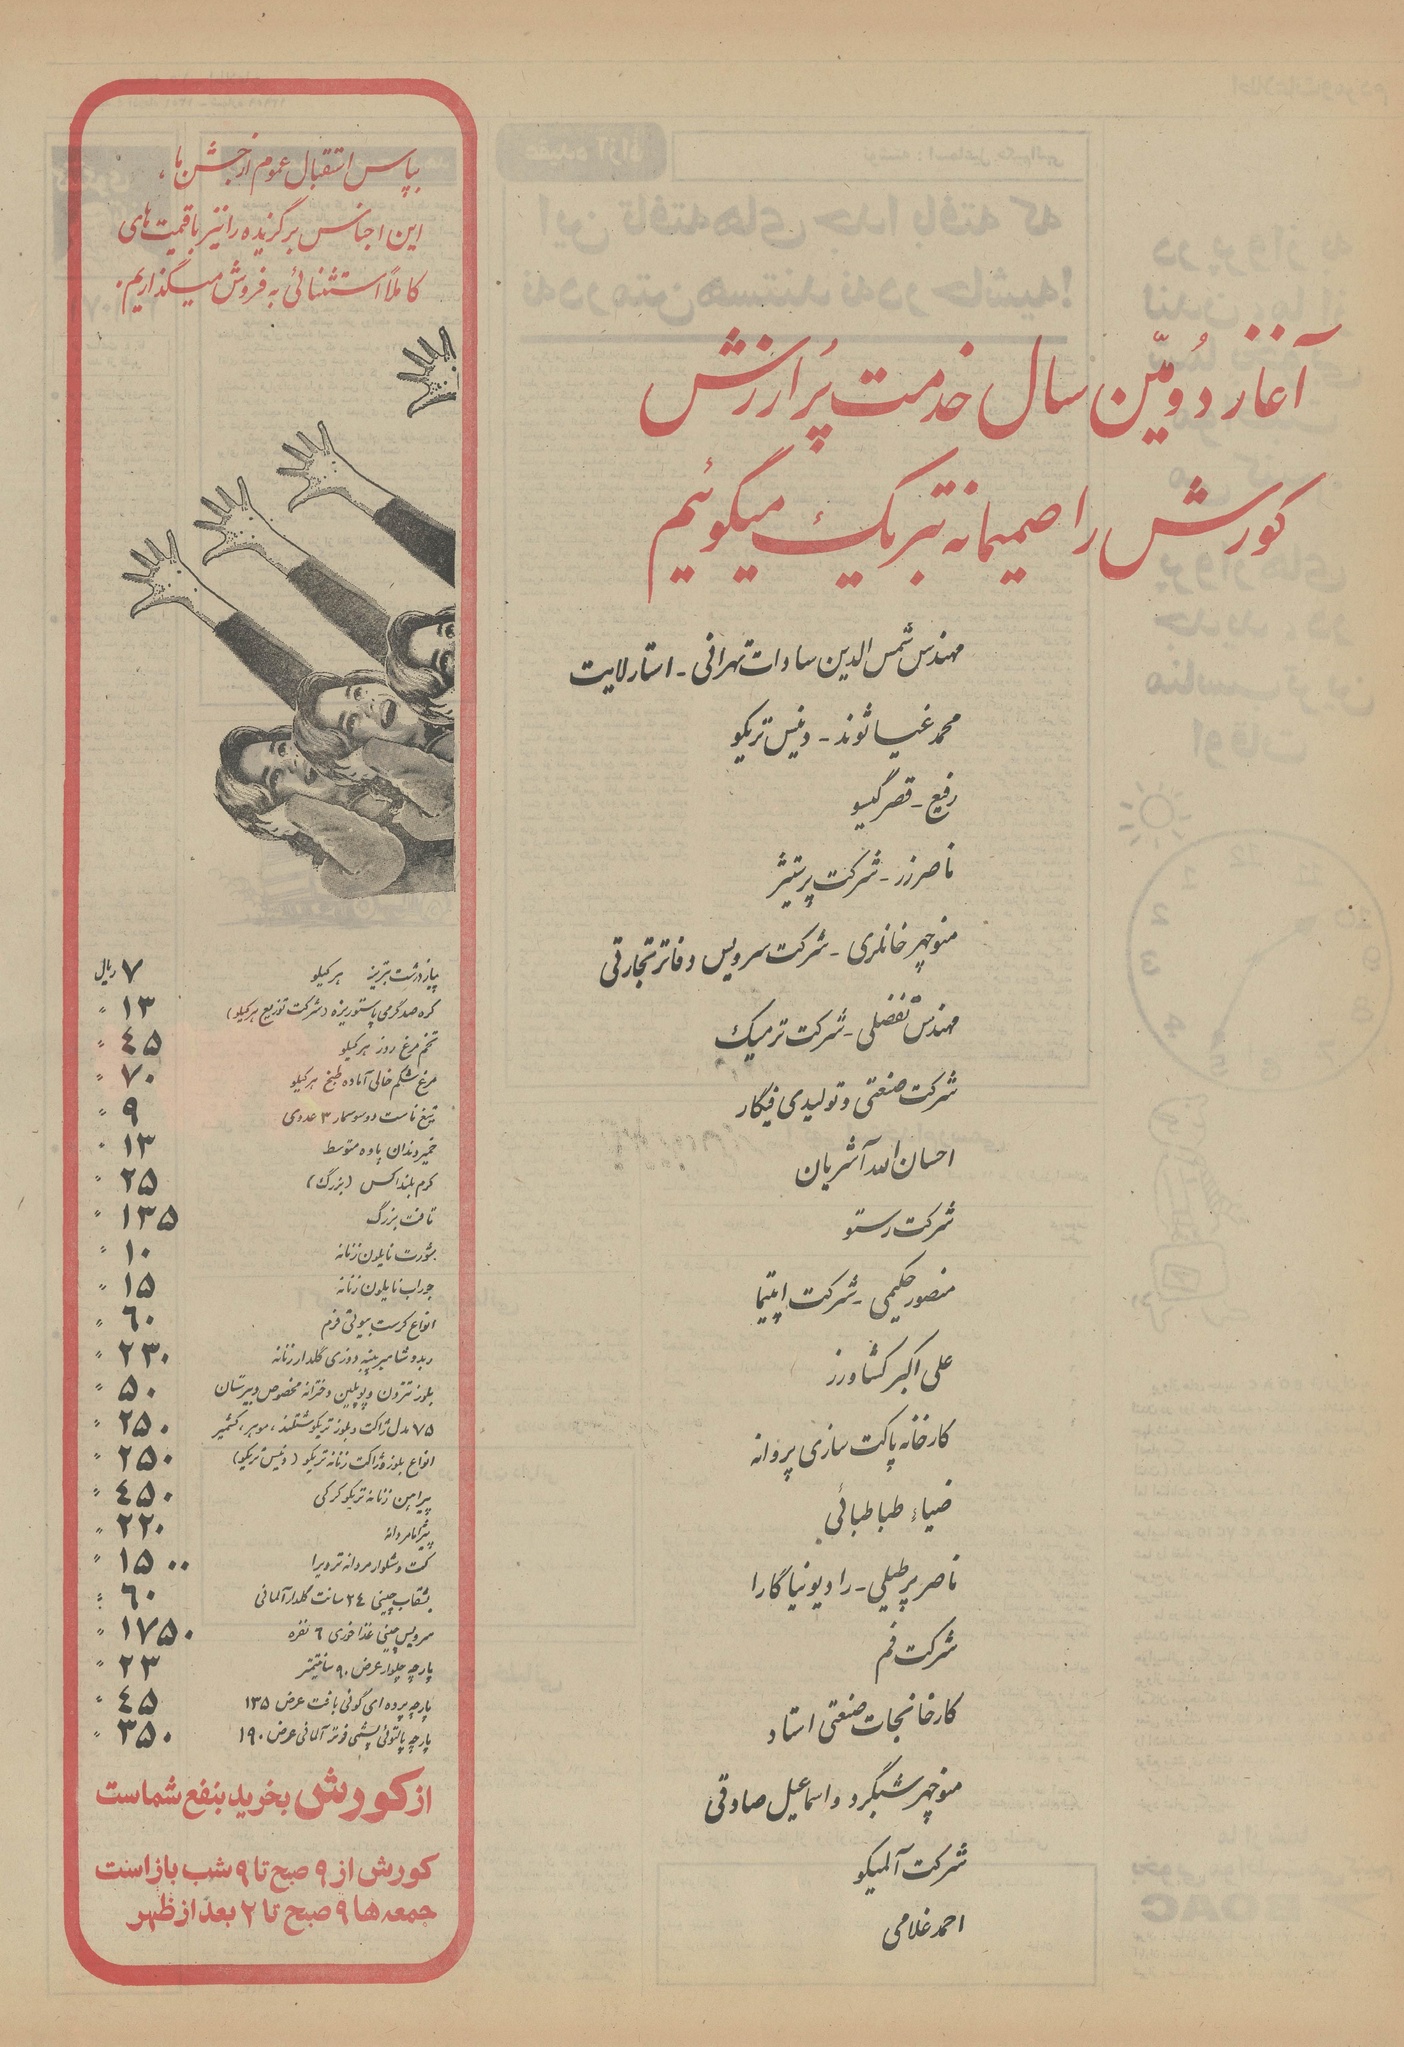 آغاز دومّین سال خدمت پُر ارزش
کورش را صمیمانه تبریک میگوئیم
مهندس شمس الدین سادات تهرانی - استارلایت
محمد غیاثوند - دنیس تریکو
رفیع - قصر گیسو
ناصر زر - شرکت پرستیژ
منوچهر خانلری - شرکت سرویس دفاتر تجارتی
مهندس تفضلی - شرکت ترمیک
شرکت صنعتی و تولیدی فیگار
احسان الله آشریان
شرکت رستو
منصور حکیمی - شرکت اپتیما
علی اکبر کشاورز
کارخانه پاکت سازی پروانه
ضیاء طباطبائی
ناصر پرطیلی - رادیو نیاگارا
شرکت فم
کارخانجات صنعتی استاد
منوچهر شبگرد و اسماعیل صادقی
شرکت آلمیکو
احمد غلامی
بپاس استقبال عموم از جشن ما،
این اجناس برگزیده را نیز با قیمت های
کاملاً استثنائی به فروش میگذاریم.
پیاز درشت تبریز هر کیلو ۷ ریال
کره صد گرمی پاستوریزه (شرکت توزیع هر کیلو) ۱۳ "
تخم مرغ روز هر کیلو ٤۵ "
مرغ شکم خالی آماده طبخ هر کیلو ۷۰ "
تیغ ناست دو سوسمار ۳ عددی ۹ "
خمیر دندان پاوه متوسط ۱۳ "
کرم بلنداکس (بزرگ) ۲۵ "
تافت بزرگ ۱۳۵ "
شورت نایلون زنانه ۱۰ "
جوراب نایلون زنانه ۱۵ "
انواع کرست بیوتی فرم ٦۰ "
ربدوشامبر پنبه دوزی گلدار زنانه ۲۳۰ "
بلوز تترون و پوپلین دخترانه مخصوص دبیرستان ۵۰ "
۷۵ مدل ژاکت و بلوز تریکو شتلند، موهر، کشمیر ۲۵۰ "
انواع بلوز و ژاکت زنانه تریکو (دنیس تریکو) ۲۵۰ "
پیراهن زنانه تریکو کرکی ٤۵۰ "
پیژاما مردانه ۲۲۰ "
کت و شلوار مردانه ترویرا ۱۵۰۰ "
بشقاب چینی ۲٤ سانت گلدار آلمانی ٦۰ "
سرویس چینی غذاخوری ٦ نفره ۱۷۵۰ "
پارچه چلوار عرض ۹۰ سانتیمتر ۲۳ "
پارچه پرده ای گونی بافت عرض ۱۳۵ ٤۵ "
پارچه پالتوئی پشمی فوتر آلمانی عرض ۱۹۰ ۳۵۰ "
از کورش بخرید بنفع شماست
کورش از ۹ صبح تا ۹ شب باز است
جمعه ها ۹ صبح تا ۲ بعد از ظهر